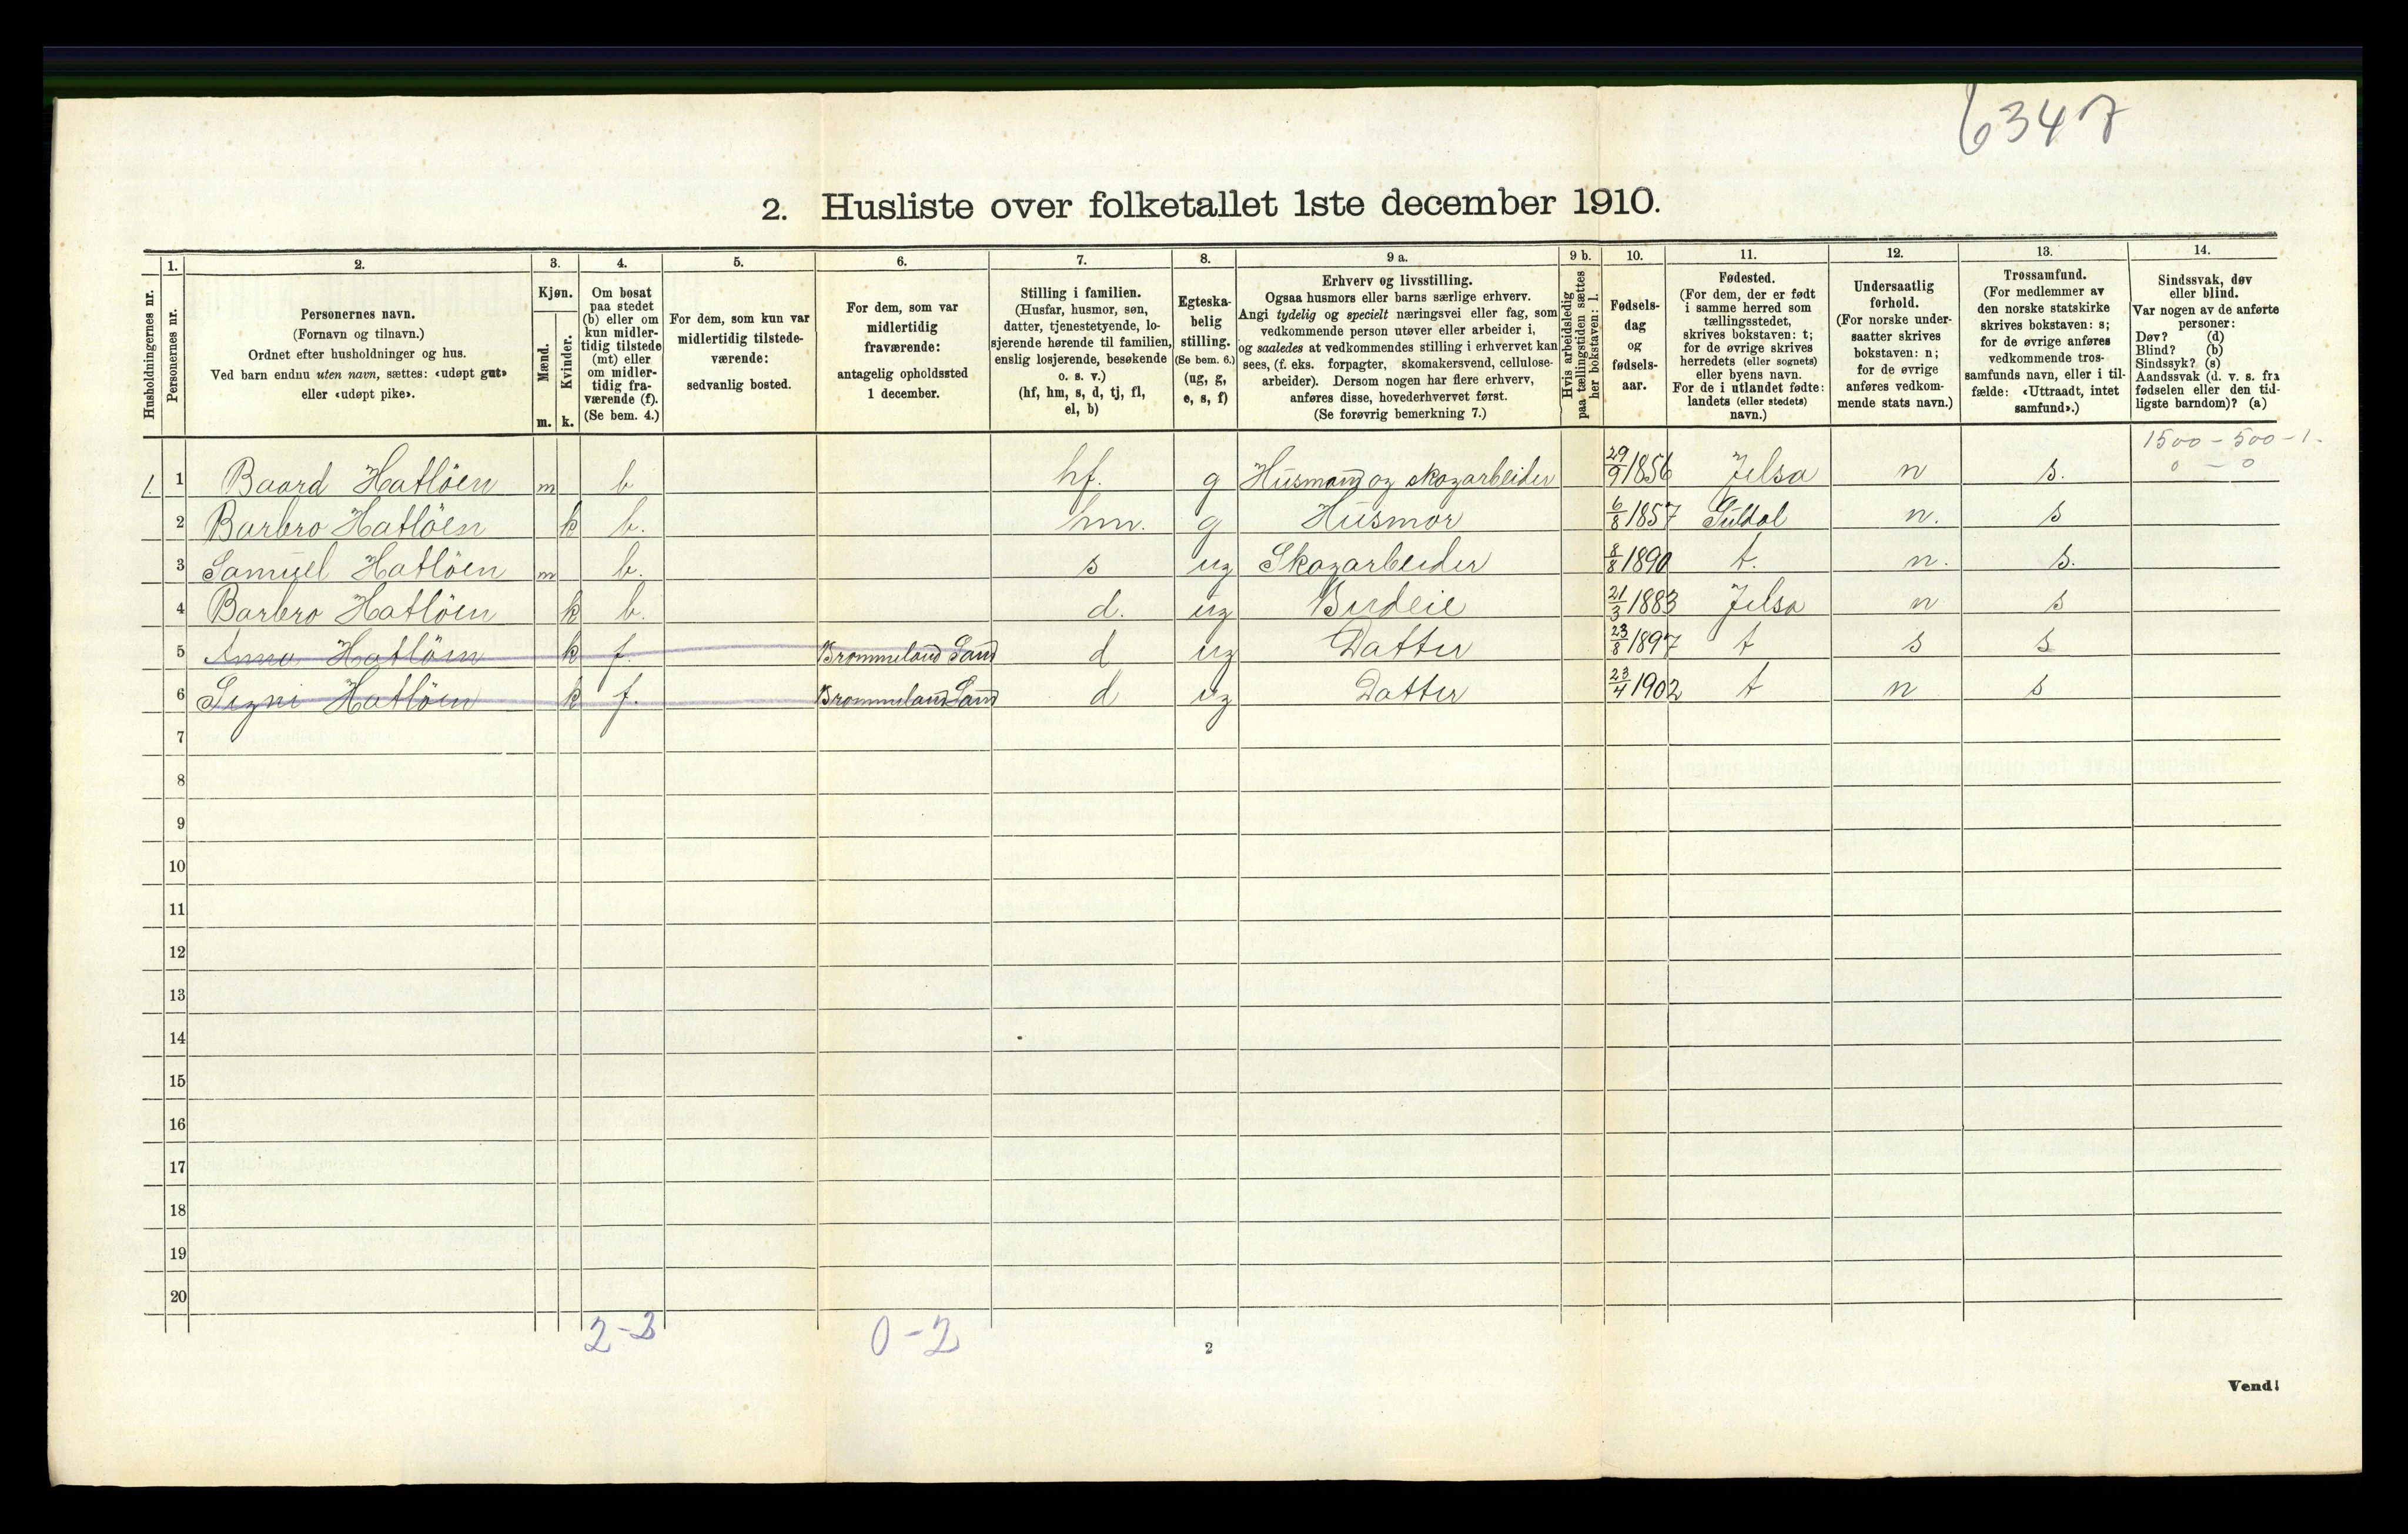 6347
2. Husliste over folketallet 1ste december 1910.
Husholdningernes nr.
1.
Personernes nr.
2.
Personernes navn.
(Fornavn og tilnavn.)
Ordnet efter husholdninger og hus.
Ved barn endnu uten navn, sættes: «udøpt gut»
eller «udøpt pike».
3.
Kjøn.
Mænd.
Kvinder.
m. k.
4.
Om bosat
paa stedet
(b) eller om
kun midler-
tidig tilstede
(mt) eller
om midler-
tidig fra-
værende (f).
(Se bem. 4.)
5.
For dem, som kun var
midlertidig tilstede-
værende:
sedvanlig bosted.
6.
For dem, som var
midlertidig
fraværende:
antagelig opholdssted
1 december.
7.
Stilling i familien.
(Husfar, husmor, søn,
datter, tjenestetyende, lo-
sjerende hørende til familien,
enslig losjerende, besøkende
o. s. v.)
(hf, hm, s, d, tj, fl,
el, b)
8.
Egteska-
belig
stilling.
(Se bem. 6.)
(ug, g,
e, s, f)
9 a.
Erhverv og livsstilling.
Ogsaa husmors eller barns særlige erhverv.
Angi tydelig og specielt næringsvei eller fag, som
vedkommende person utøver eller arbeider i,
og saaledes at vedkommendes stilling i erhvervet kan
sees, (f. eks. forpagter, skomakersvend, cellulose-
arbeider). Dersom nogen har flere erhverv,
anføres disse, hovederhvervet først.
(Se forøvrig bemerkning 7.)
9 b.
Hvis arbeidsledig
paa tællingstiden sættes
her bokstaven: l.
10.
Fødsels-
dag
og
fødsels-
aar.
11.
Fødested.
(For dem, der er født
i samme herred som
tællingsstedet,
skrives bokstaven: t;
for de øvrige skrives
herredets (eller sognets)
eller byens navn.
For de i utlandet fødte:
landets (eller stedets)
navn.)
12.
Undersaatlig
forhold.
(For norske under-
saatter skrives
bokstaven: n;
for de øvrige
anføres vedkom-
mende stats navn.)
13.
Trossamfund.
(For medlemmer av
den norske statskirke
skrives bokstaven: s;
for de øvrige anføres
vedkommende tros-
samfunds navn, eller i til-
fælde: «Uttraadt, intet
samfund».)
14.
Sindssvak, døv
eller blind.
Var nogen av de anførte
personer:
Døv? (d)
Blind? (b)
Sindssyk? (s)
Aandssvak (d. v. s. fra
fødselen eller den tid-
ligste barndom)? (a)
1500 – 500 – 1.
0 – 0
1. 1 Baard Hatlöen m b hf. g Husmand og skogarbeider 29/9 1856 Jelsa n s.
2 Barbro Hatlöen k b. hm. g Husmor 6/8 1857 Suldal n. s
3 Samuel Hatlöen m b. s ug Skogarbeider 8/8 1890 t. n. s.
4 Barbro Hatlöen k b. d. ug Budeie 21/3 1883 Jelsa n s
5 Anna Hatlöen k f. Brommeland Sand d ug Datter 23/8 1897 t s s
6 Signi Hatlöen k f. Brommeland Sand d ug Datter 23/4 1902 t n s
7
8
9
10
11
12
13
14
15
16
17
18
19
20
2-2 0-2
2
Vend!